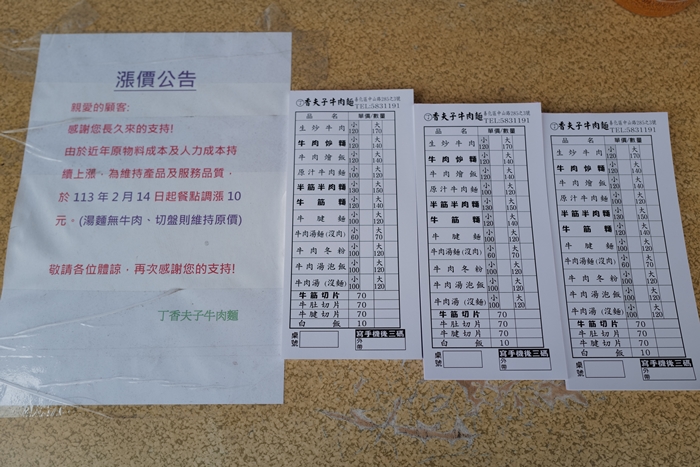 漲價公告
親愛的顧客:
感謝您長久來的支持!
由於近年原物料成本及人力成本持
續上漲。為維持產品及服務品質,
於 113 年 2 月 14 日起餐點調漲 10
元。(湯麵無牛肉、切盤則維持原價)
敬請各位體諒,再次感謝您的支持!
丁香夫子牛肉麵
丁香夫子牛肉麵
TEL:5831191
品 名 單價/數量
生炒牛肉 小120 大170
牛肉炒麵 小120 大140
牛肉燴飯 小120 大140
原汁牛肉麵 小100 大130
半筋半肉麵 小130 大150
牛筋麵 小120 大140
牛腱麵 小100 大120
牛肉湯麵(沒肉) 小60 大70
牛肉冬粉 小100 大120
牛肉湯泡飯 小100 大120
牛肉湯(沒麵) 小100 大120
牛筋切片 70
牛肚切片 70
牛腱切片 70
白飯 10
桌號
寫手機後三碼
外帶
香夫子牛肉麵
TEL:5831191
品 名 單價/數量
生炒牛肉 小120 大170
牛肉炒麵 小120 大140
牛肉燴飯 小120 大140
原汁牛肉麵 小100 大130
半筋半肉麵 小130 大150
牛筋麵 小120 大140
牛腱麵 小100 大120
牛肉湯麵(沒肉) 小60 大70
牛肉冬粉 小100 大120
牛肉湯泡飯 小100 大120
牛肉湯(沒麵) 小100 大120
牛筋切片 70
牛肚切片 70
牛腱切片 70
白飯 10
桌號
寫手機後三碼
外帶
香夫子牛肉麵
TEL:5831191
品 名 單價/數量
生炒牛肉 小120 大170
牛肉炒麵 小120 大140
牛肉燴飯 小120 大140
原汁牛肉麵 小100 大130
半筋半肉麵 小130 大150
牛筋麵 小120 大140
牛腱麵 小100 大120
牛肉湯麵(沒肉) 小60 大70
牛肉冬粉 小100 大120
牛肉湯泡飯 小100 大120
牛肉湯(沒麵) 小100 大120
牛筋切片 70
牛肚切片 70
牛腱切片 70
白飯 10
桌號
寫手機後三碼
外帶